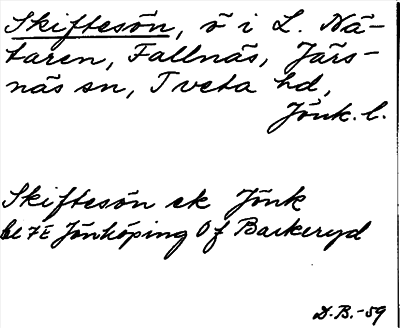 Skiftesön, ö i L. Nä-
taren, Fallnäs, Järs-
näs sn, Tveta hd,
Jönk. l.
Skiftesön ek Jönk
bl 7E Jönköping Of Barkeryd
D.B.-59